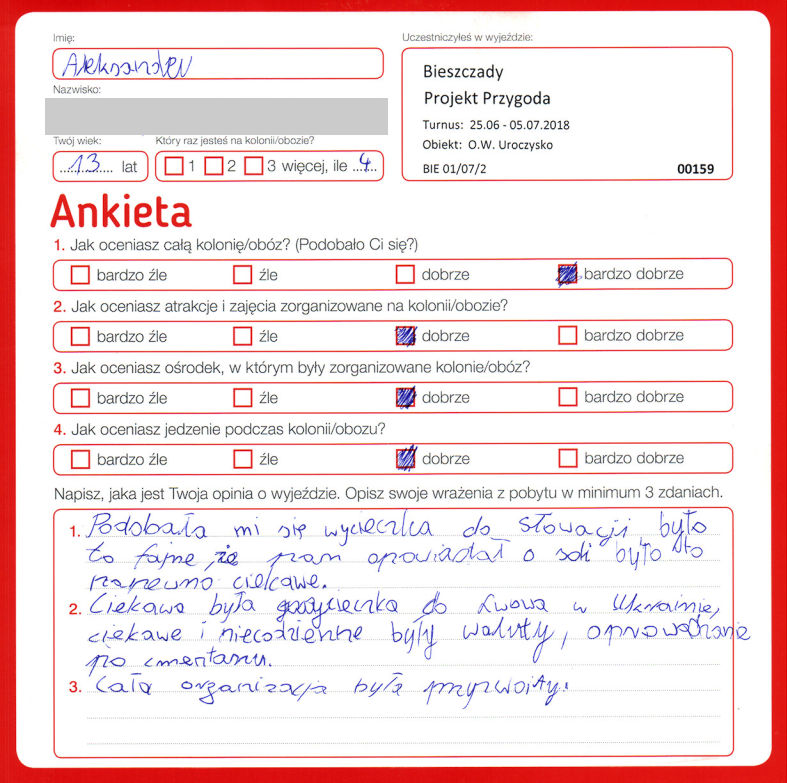 Imię:
Aleksander
Nazwisko:
Twój wiek:
13 lat
Który raz jesteś na kolonii/obozie?
1 2 3 więcej, ile 4
Uczestniczyłeś w wyjeździe:
Bieszczady
Projekt Przygoda
Turnus: 25.06 - 05.07.2018
Obiekt: O.W. Uroczysko
BIE 01/07/2 00159
Ankieta
1. Jak oceniasz całą kolonię/obóz? (Podobało Ci się?)
bardzo źle źle dobrze bardzo dobrze
2. Jak oceniasz atrakcje i zajęcia zorganizowane na kolonii/obozie?
bardzo źle źle dobrze bardzo dobrze
3. Jak oceniasz ośrodek, w którym były zorganizowane kolonie/obóz?
bardzo źle źle dobrze bardzo dobrze
4. Jak oceniasz jedzenie podczas kolonii/obozu?
bardzo źle źle dobrze bardzo dobrze
Napisz, jaka jest Twoja opinia o wyjeździe. Opisz swoje wrażenia z pobytu w minimum 3 zdaniach.
1. Podobała mi się wycieczka do Słowacji, było
to fajne, że pan opowiadał o soli było to
napewno ciekawe.
2. Ciekawa była wycieczka do Lwowa w Ukrainie,
ciekawe i niecodzienne były waluty, oprowadzanie
po cmentarzu.
3. Cała organizacja była przyzwoity.